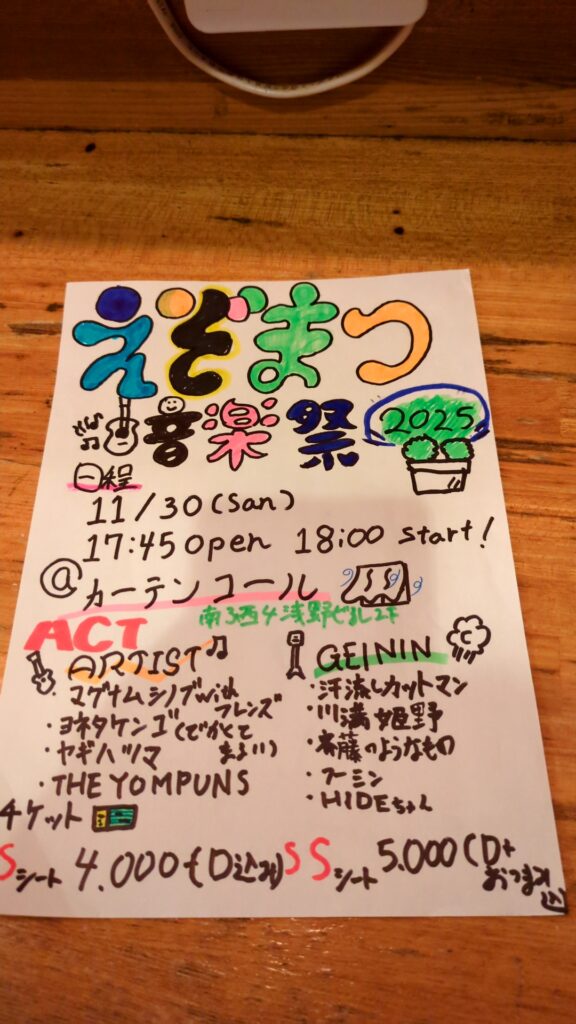 えぞまつ
音楽祭 2025
日程
11/30(San)
17:45 open 18:00 start!
@カーテンコール
南3西4浅野ビル2F
ACT
ARTIST
・マグナムシノブwith
フレンズ
・ヨネタケンゴ(でかくて
まぁい)
・ヤギハツマ
・THE YOMPUNS
GEININ
・汗流しカットマン
・川満姫野
・斎藤のようなもの
・フーミン
・HIDEちゃん
チケット
Sシート 4.000(D込み)
SSシート 5.000(D+
おつまみ
込